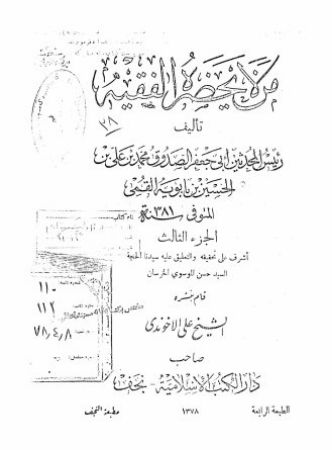 من لا يحضره الفقيه
٣٨
تأليف
رئيس المحدثين أبى جعفر الصدوق محمد بن على بن
الحسين بن بابويه القمى
المتوفى سنة ٣٨١
الجزء الثالث
أشرف على تحقيقه والتعليق عليه سيدنا الحجة
السيد حسن الموسوي الخرسان
قام بنشره
الشيخ على الآخوندى
صاحب
دار الكتب الإسلامية - نجف
نام كتاب
١١٠
١١٢
٧٨,٤,٨
الطبعة الرابعة
١٣٧٨
مطبعة النجف